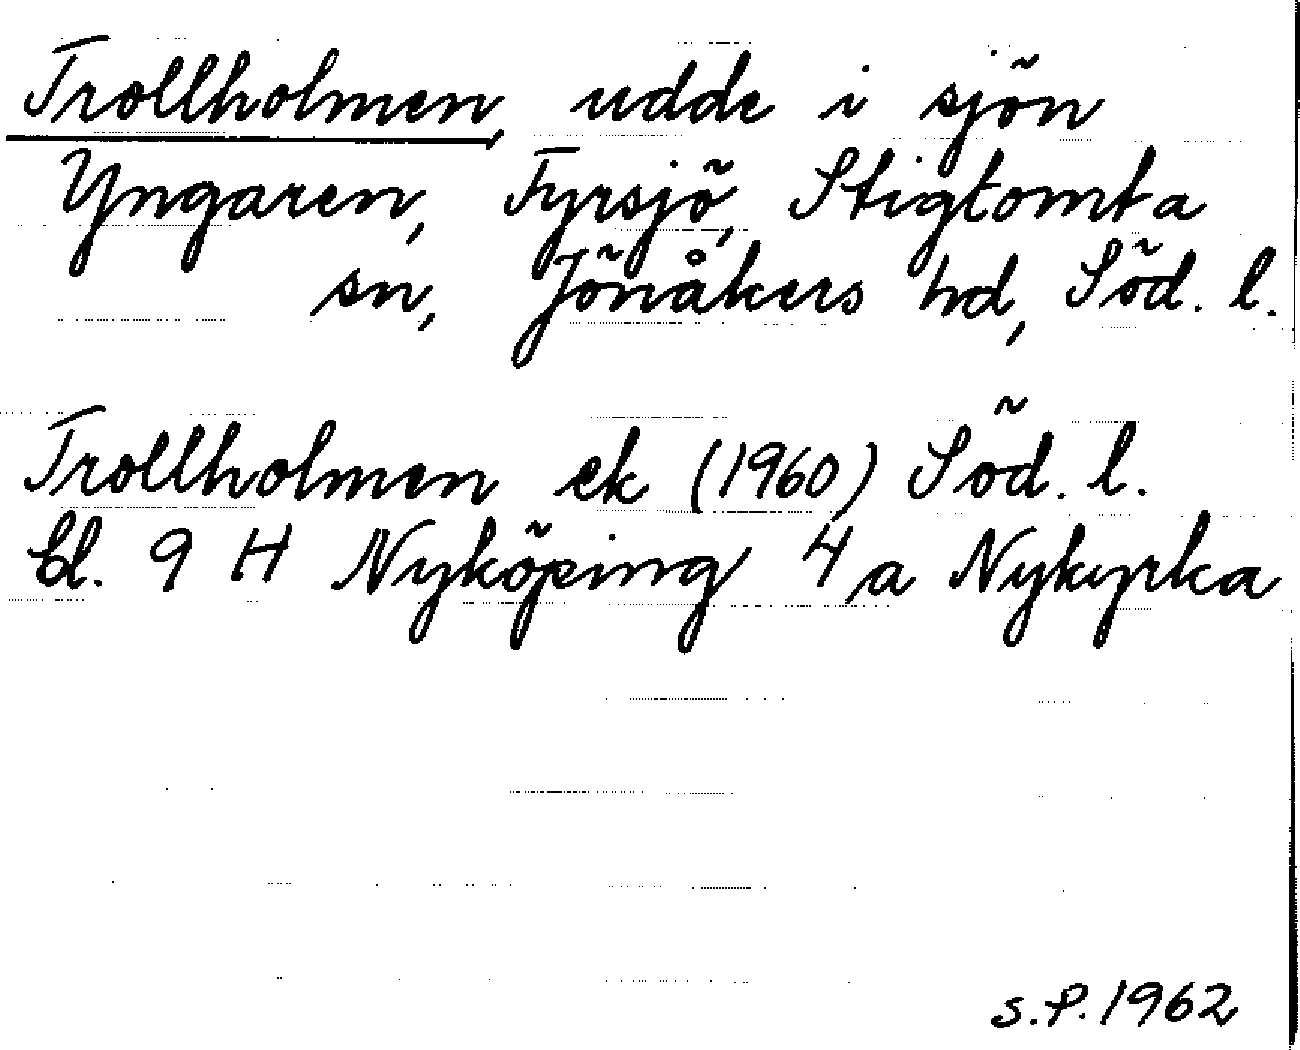 Trollholmen, udde i sjön
Yngaren, Fyrsjö, Stigtomta
sn, Jönåkers hd, Söd. l.
Trollholmen ek (1960) Söd. l.
bl. 9 H Nyköping 4 a Nykyrka
s.P. 1962